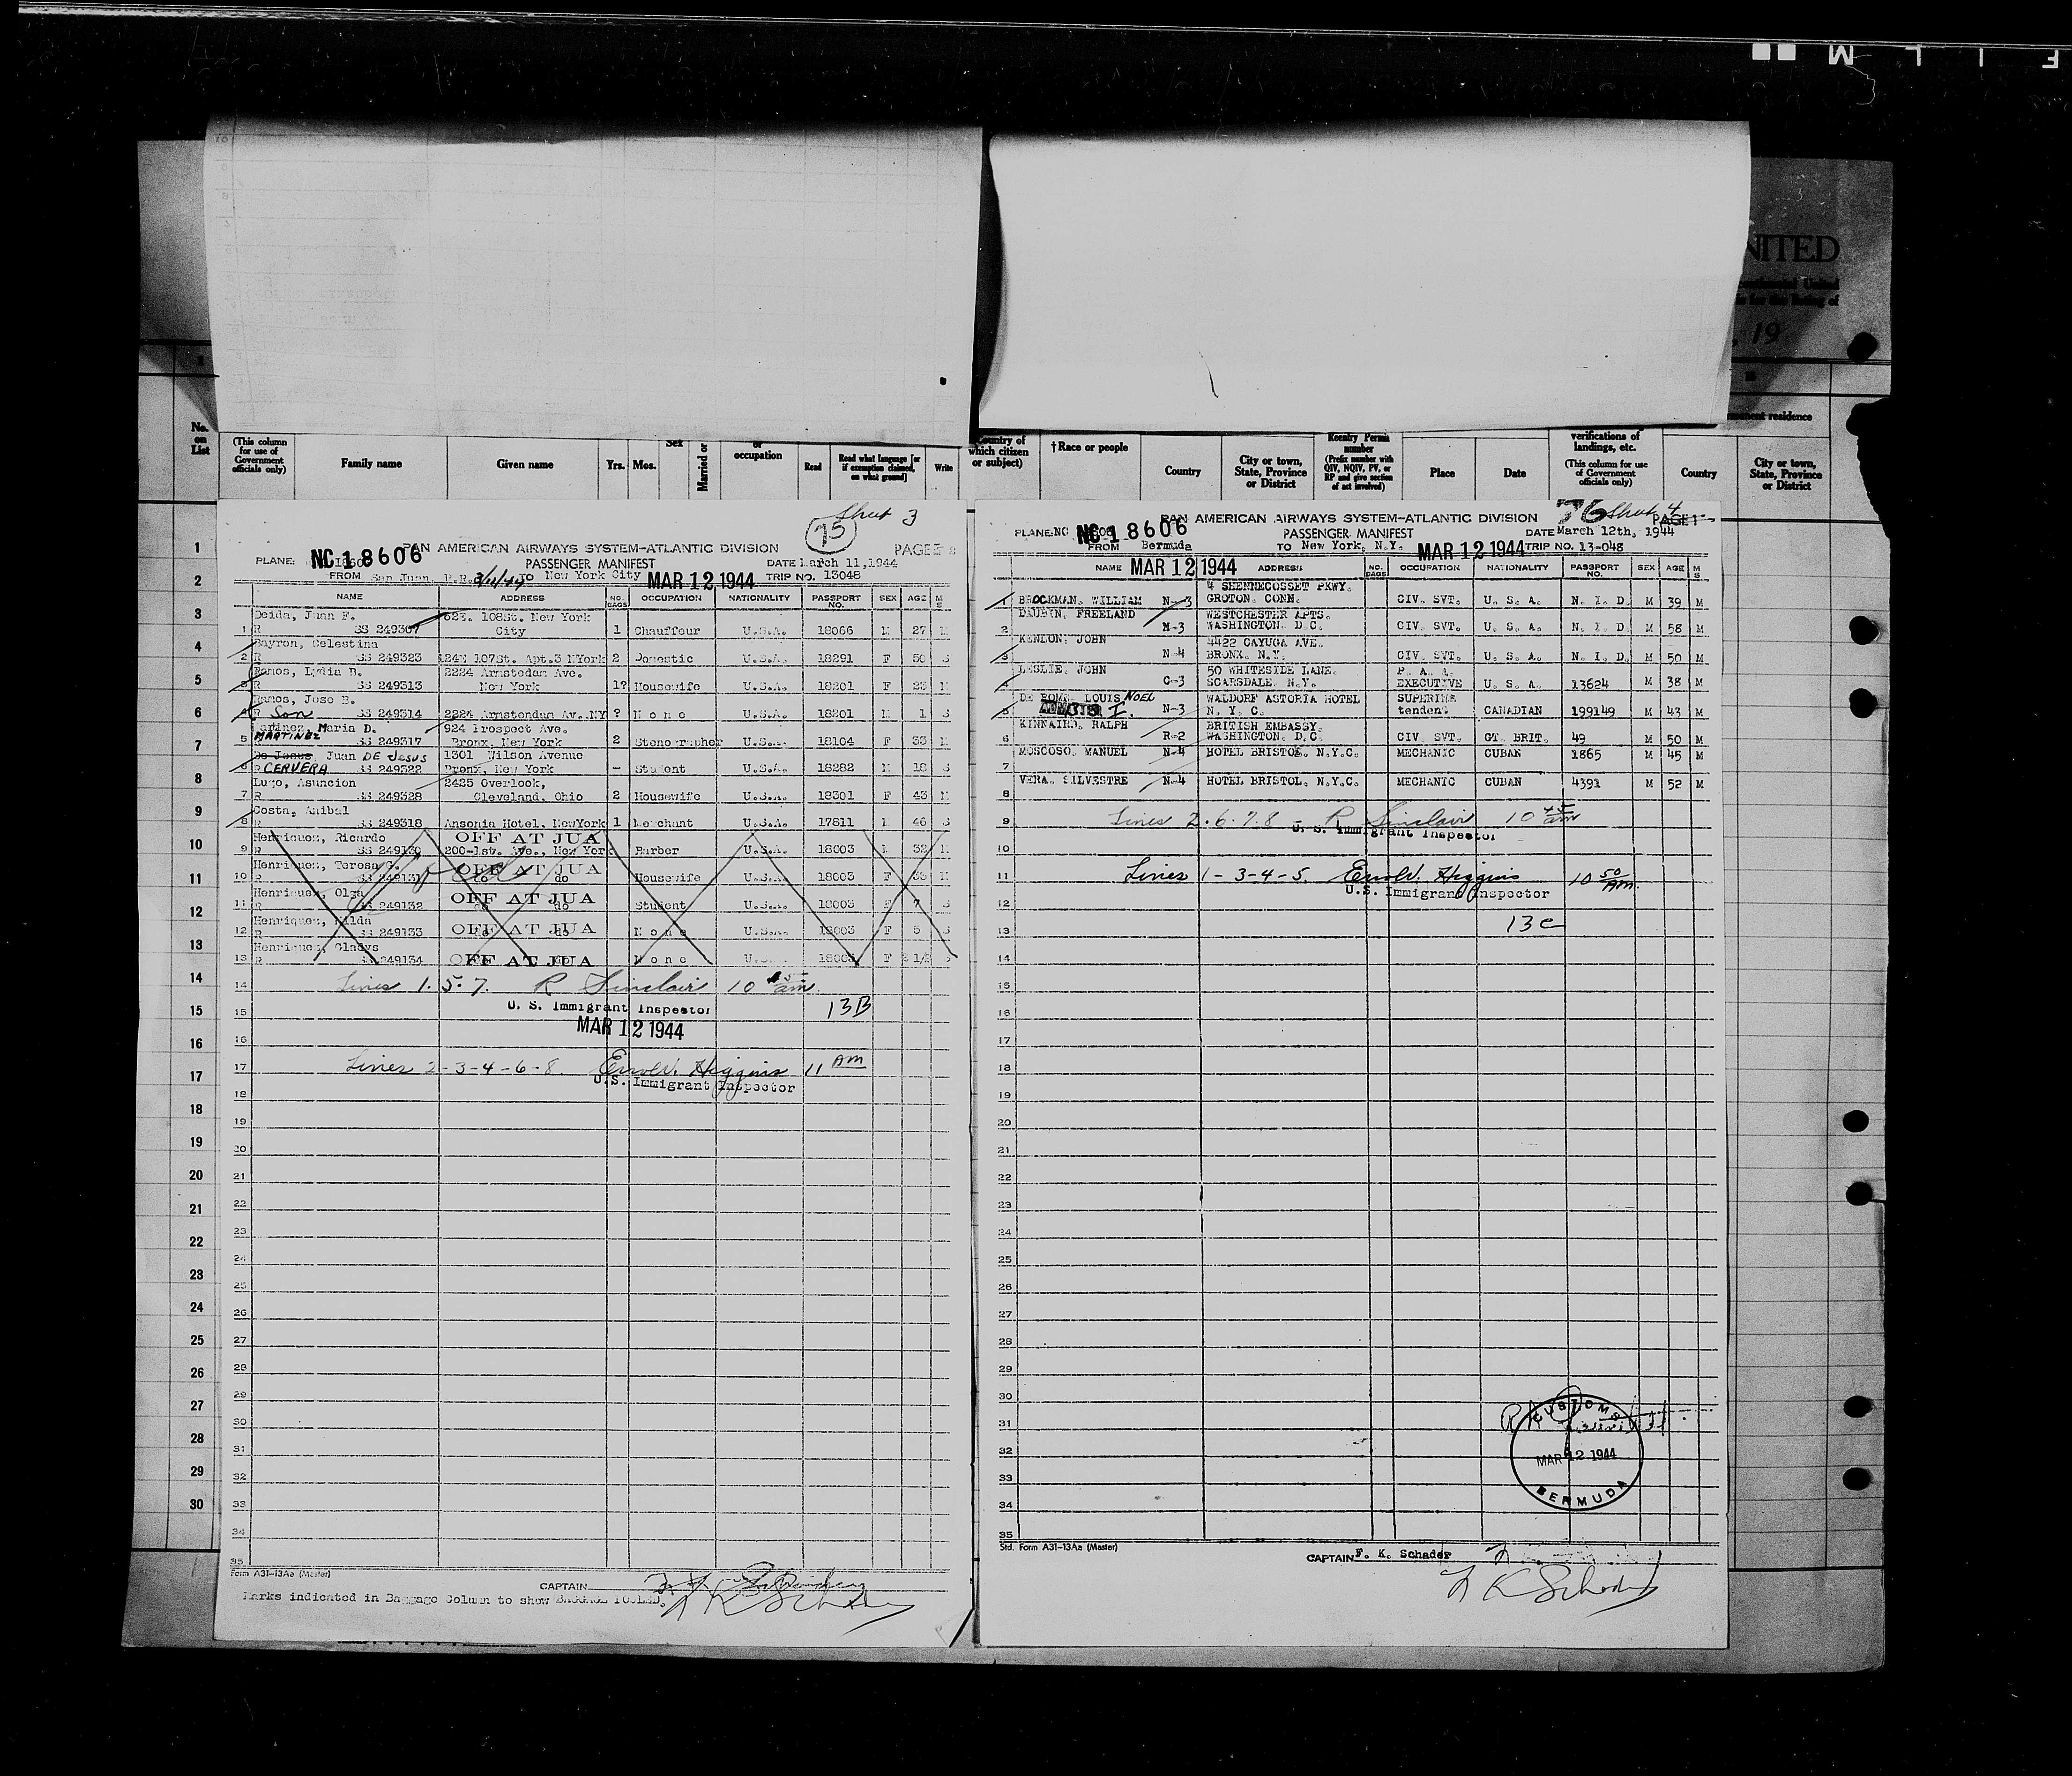 FILM
NITED
, 19
No.
on
List
(This column
for use of
Government
officials only)
Family name
Given name
Yrs.
Mos.
Sex
Married or
or
occupation
Read
Read what language [or
if exemption claimed,
on what ground]
Write
Country of
which citizen
or subject)
†Race or people
Country
City or town,
State, Province
or District
Reentry Permit
number
(Prefix number with
QIV, NQIV, PV, or
RP and give section
of act involved)
Place
Date
verifications of
landings, etc.
(This column for use
of Government
officials only)
residence
Country
City or town,
State, Province
or District
1
2
3
4
5
6
7
8
9
10
11
12
13
14
15
16
17
18
19
20
21
22
23
24
25
26
27
28
29
30
75
Sheet 3
PAN AMERICAN AIRWAYS SYSTEM–ATLANTIC DIVISION PAGE
PLANE: NC18606 PASSENGER MANIFEST DATE March 11, 1944
FROM San Juan, P.R. 3/11/44 TO New York City MAR 12 1944 TRIP NO. 13048
NAME ADDRESS NO. BAGS OCCUPATION NATIONALITY PASSPORT NO. SEX AGE M S
Deida, Juan F. 62E. 108St. New York
1 R SS 249307 City 1 Chauffeur U.S.A. 18066 M 27 M
Bayron, Celestina
2 R SS 249323 124E 107St. Apt.3 NYork 2 Domestic U.S.A. 18291 F 50 S
Ramos, Lydia B. 2224 Amstedam Ave.
3 R SS 249313 New York 1? Housewife U.S.A. 18201 F 23 M
Ramos, Jose B.
4 R Son SS 249314 2224 Amstendam Av.NY ? None U.S.A. 18201 M 1 S
Martinez, Maria D. 924 Prospect Ave.
MARTINEZ
5 R SS 249317 Bronx, New York 2 Stenographer U.S.A. 18104 F 33 M
De Jesus, Juan DE JESUS 1301 Wilson Avenue
6 R CERVERA SS 249322 Bronx, New York - Student U.S.A. 18282 M 18 S
Lugo, Asuncion 2425 Overlook,
7 R SS 249328 Cleveland, Ohio 2 Housewife U.S.A. 18301 F 43 M
Costa, Anibal
8 R SS 249318 Ansonia Hotel, NewYork 1 Merchant U.S.A. 17811 M 46 S
Henriquez, Ricardo OFF AT JUA
9 R SS 249130 200-1st. Ave., New York Barber U.S.A. 18003 M 32 M
Henriquez, Teresa G. OFF AT JUA
10 R SS 249131 do do Housewife U.S.A. 18003 F 35 M
Henriquez, Olga OFF AT JUA
11 R SS 249132 do Student U.S.A. 18003 F 7 S
Henriquez, Hilda OFF AT JUA
12 R SS 249133 do None U.S.A. 18003 F 5 S
Henriquez, Gladys
13 R SS 249134 OFF AT JUA None U.S.A. 18003 F 1/2 S
14 Lines 1. 5. 7. R Sinclair 10 45 am.
U. S. Immigrant Inspector 13B
15
MAR 12 1944
16
17 Lines 2-3-4-6-8. Errol W. Higgins 11 AM
U.S. Immigrant Inspector
18
19
20
21
22
23
24
25
26
27
28
29
30
31
32
33
34
35
Form A31–13Aa (Master)
CAPTAIN F K Schader
Marks indicated in Baggage Column to show BAGGAGE POOLED.
76 Sheet 4
PAN AMERICAN AIRWAYS SYSTEM–ATLANTIC DIVISION PAGE 1
PLANE: NC NC18606 PASSENGER MANIFEST DATE March 12th, 1944
FROM Bermuda TO New York, N.Y. MAR 12 1944 TRIP NO. 13-048
NAME MAR 12 1944 ADDRESS NO. BAGS OCCUPATION NATIONALITY PASSPORT NO. SEX AGE M S
4 SHENNECOSSET PKWY.
1 BROCKMAN, WILLIAM N-3 GROTON, CONN. CIV. SVT. U. S. A. N. I. D. M 39 M
DAUBIN, FREELAND WESTCHESTER APTS.
2 M-3 WASHINGTON, D.C. CIV. SVT. U. S. A. N. I. D. M 58 M
KENLON, JOHN 4422 CAYUGA AVE.
3 N-4 BRONX, N.Y. CIV. SVT. U. S. A. N. I. D. M 50 M
LESLIE, JOHN 50 WHITESIDE LANE. P. A. A.
4 C-3 SCARSDALE, N.Y. EXECUTIVE U. S. A. 13624 M 38 M
DE ROME, LOUIS NOEL WALDORF ASTORIA HOTEL SUPERIN-
5 I. N-3 N. Y. C. tendent CANADIAN 199149 M 43 M
KINNAIRD, RALPH BRITISH EMBASSY.
6 R-2 WASHINGTON, D.C. CIV. SVT. GT. BRIT. 49 M 50 M
MOSCOSO, MANUEL N-4 HOTEL BRISTOL, N.Y.C. MECHANIC CUBAN 1865 M 45 M
7
VERA, SILVESTRE N-4 HOTEL BRISTOL, N.Y.C. MECHANIC CUBAN 4391 M 52 M
8
9 Lines 2. 6. 7. 8 R Sinclair 10 45 am
U. S. Immigrant Inspector
10
11 Lines 1-3-4-5. Errol W. Higgins 10 50 AM.
U.S. Immigrant Inspector
12
13 13C
14
15
16
17
18
19
20
21
22
23
24
25
26
27
28
29
30
31
32
33
34
35
CUSTOMS
MAR 12 1944
BERMUDA
Std. Form A31–13Aa (Master)
CAPTAIN F. K. Schader
F K Schader